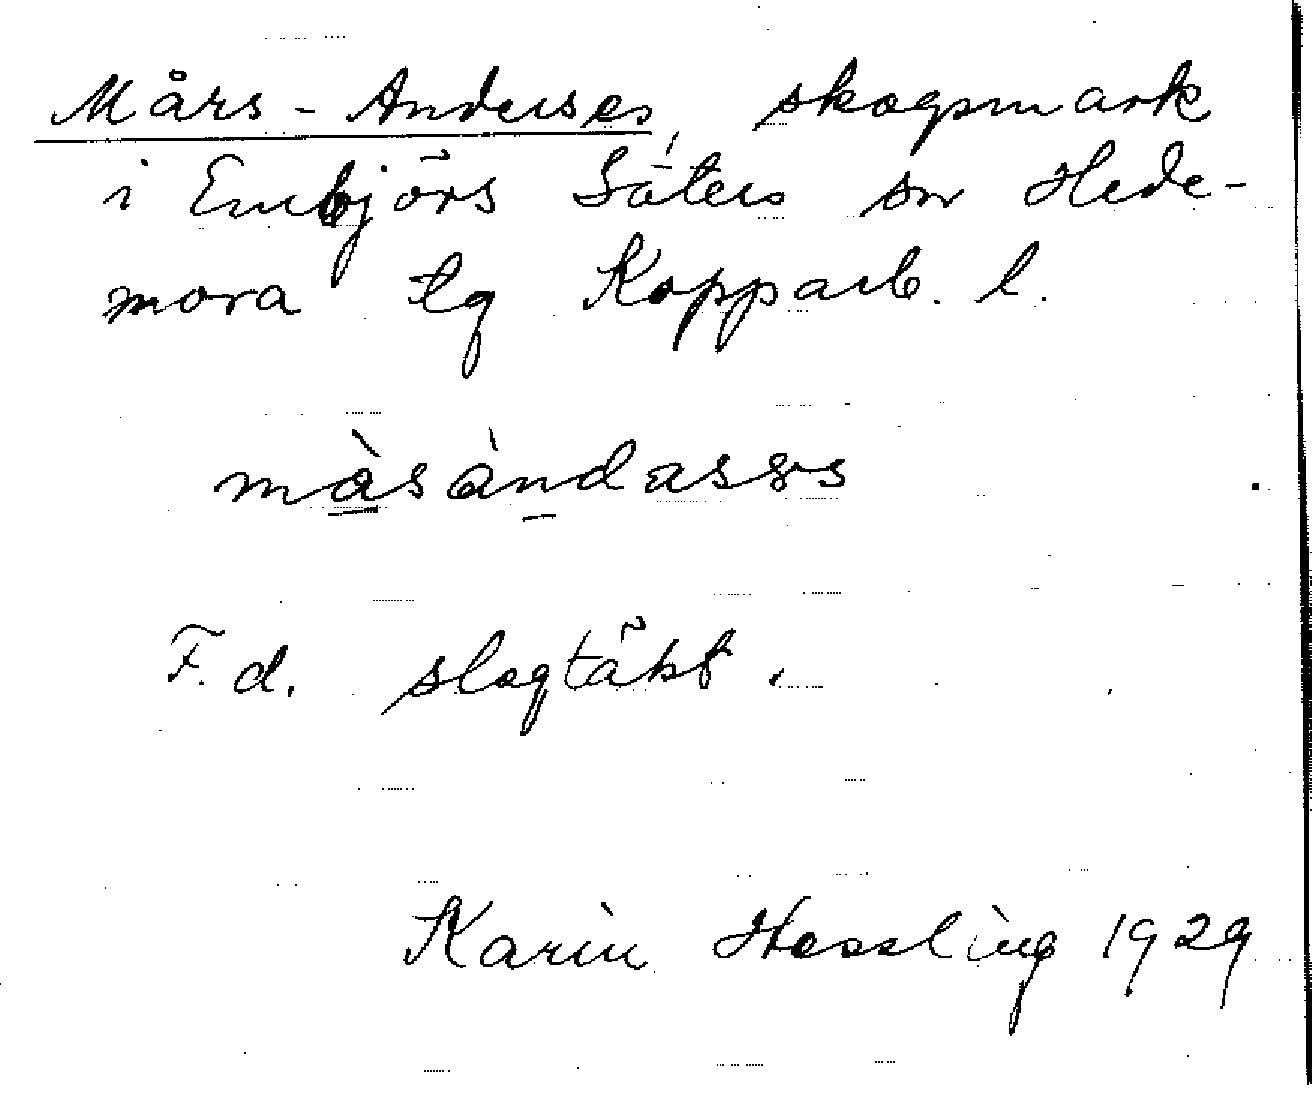 Mårs-Anderses, skogsmark
i Embjörs Säters sn Hede-
mora tg Kopparb. l.
màsàndasss
F.d. slogtäkt.
Karin Hessling 1929